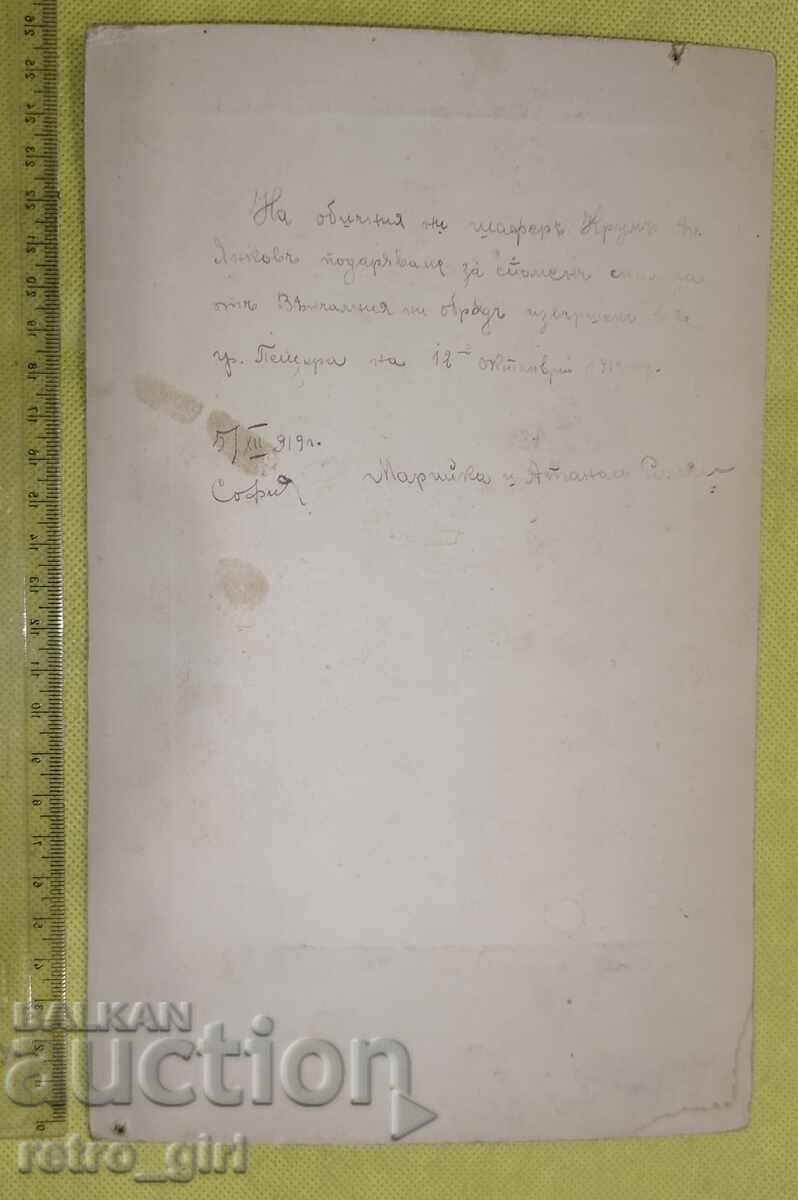 На обичния ни шаферъ Крумъ
Янковъ подаряваме за споменъ
отъ Вѣнчалния ни обрядъ извършенъ въ
гр. Пещера на 12-й октомврий
5/XII 919 г.
София
Марийка и Атанас
BALKAN
auction
retro_girl